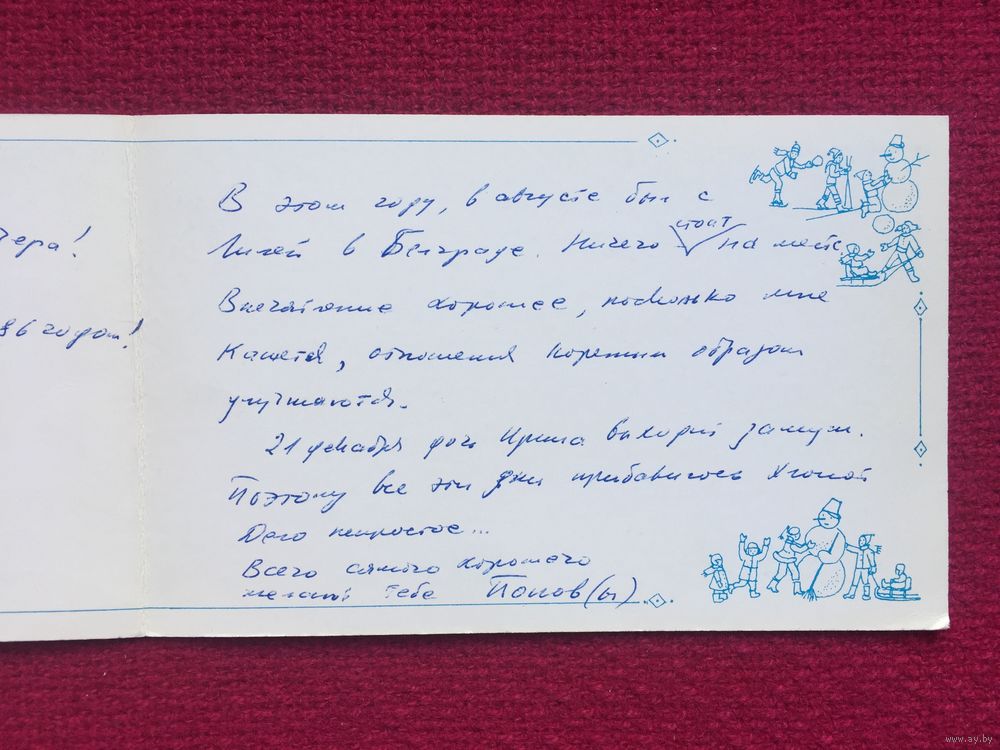 Вера!
86 годом!
В этом году, в августе был с
Лилей в Белграде. Ничего стоит на месте.
Впечатление хорошее, поскольку мне
кажется, отношения коренным образом
улучшаются.
21 декабря дочь Ирина выходит замуж.
Поэтому все эти дни прибавилось хлопот
Дело непростое...
Всего самого хорошего
желают тебе Попов(ы)
www.ay.by